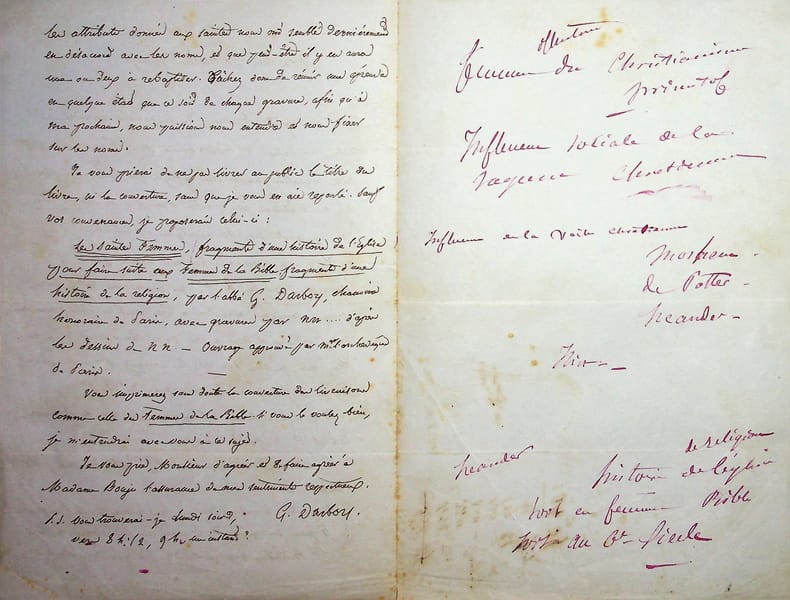 les attributs donnés aux saintes nous ont semblé dernièrement
en désaccord avec les noms, et que peut-être il y en aura
une ou deux à rebaptiser. Tâchez donc de réunir une épreuve
en quelque état que ce soit de chaque gravure, afin qu'à
ma prochaine, nous puissions nous entendre et nous fixer
sur les noms.
Je vous prierai de ne pas livrer au public le titre du
livre, ni la couverture, sans que je vous en aie reparlé. Sauf
vos convenances, je proposerais celui-ci :
Les saintes Femmes, fragments d'une histoire de l'Eglise
pour faire suite aux Femmes de la Bible fragments d'une
histoire de la religion, par l'abbé G. Darboy, chanoine
honoraire de Paris, avec gravures par NN .... d'après
les dessins de NN. — Ouvrage approuvé par Mgr l'archevêque
de Paris. —
Vous imprimerez sans doute la couverture des livraisons
comme celle des Femmes de la Bible. Si vous le voulez bien,
je m'entendrai avec vous à ce sujet.
Je vous prie, Monsieur d'agréer et de faire agréer à
Madame Bouju l'assurance de mes sentiments respectueux.
G. Darboy.
P.S. Vous trouverai-je lundi soir,
vers 8 h. 1/2, 9 h. un instant ?
du Christianisme
primitif
Influence sociale de la
Chrétienne
Influence de la
de Potter —
neander —
neander
de religion
histoire de l'église
femmes Bible
au 6e Siècle